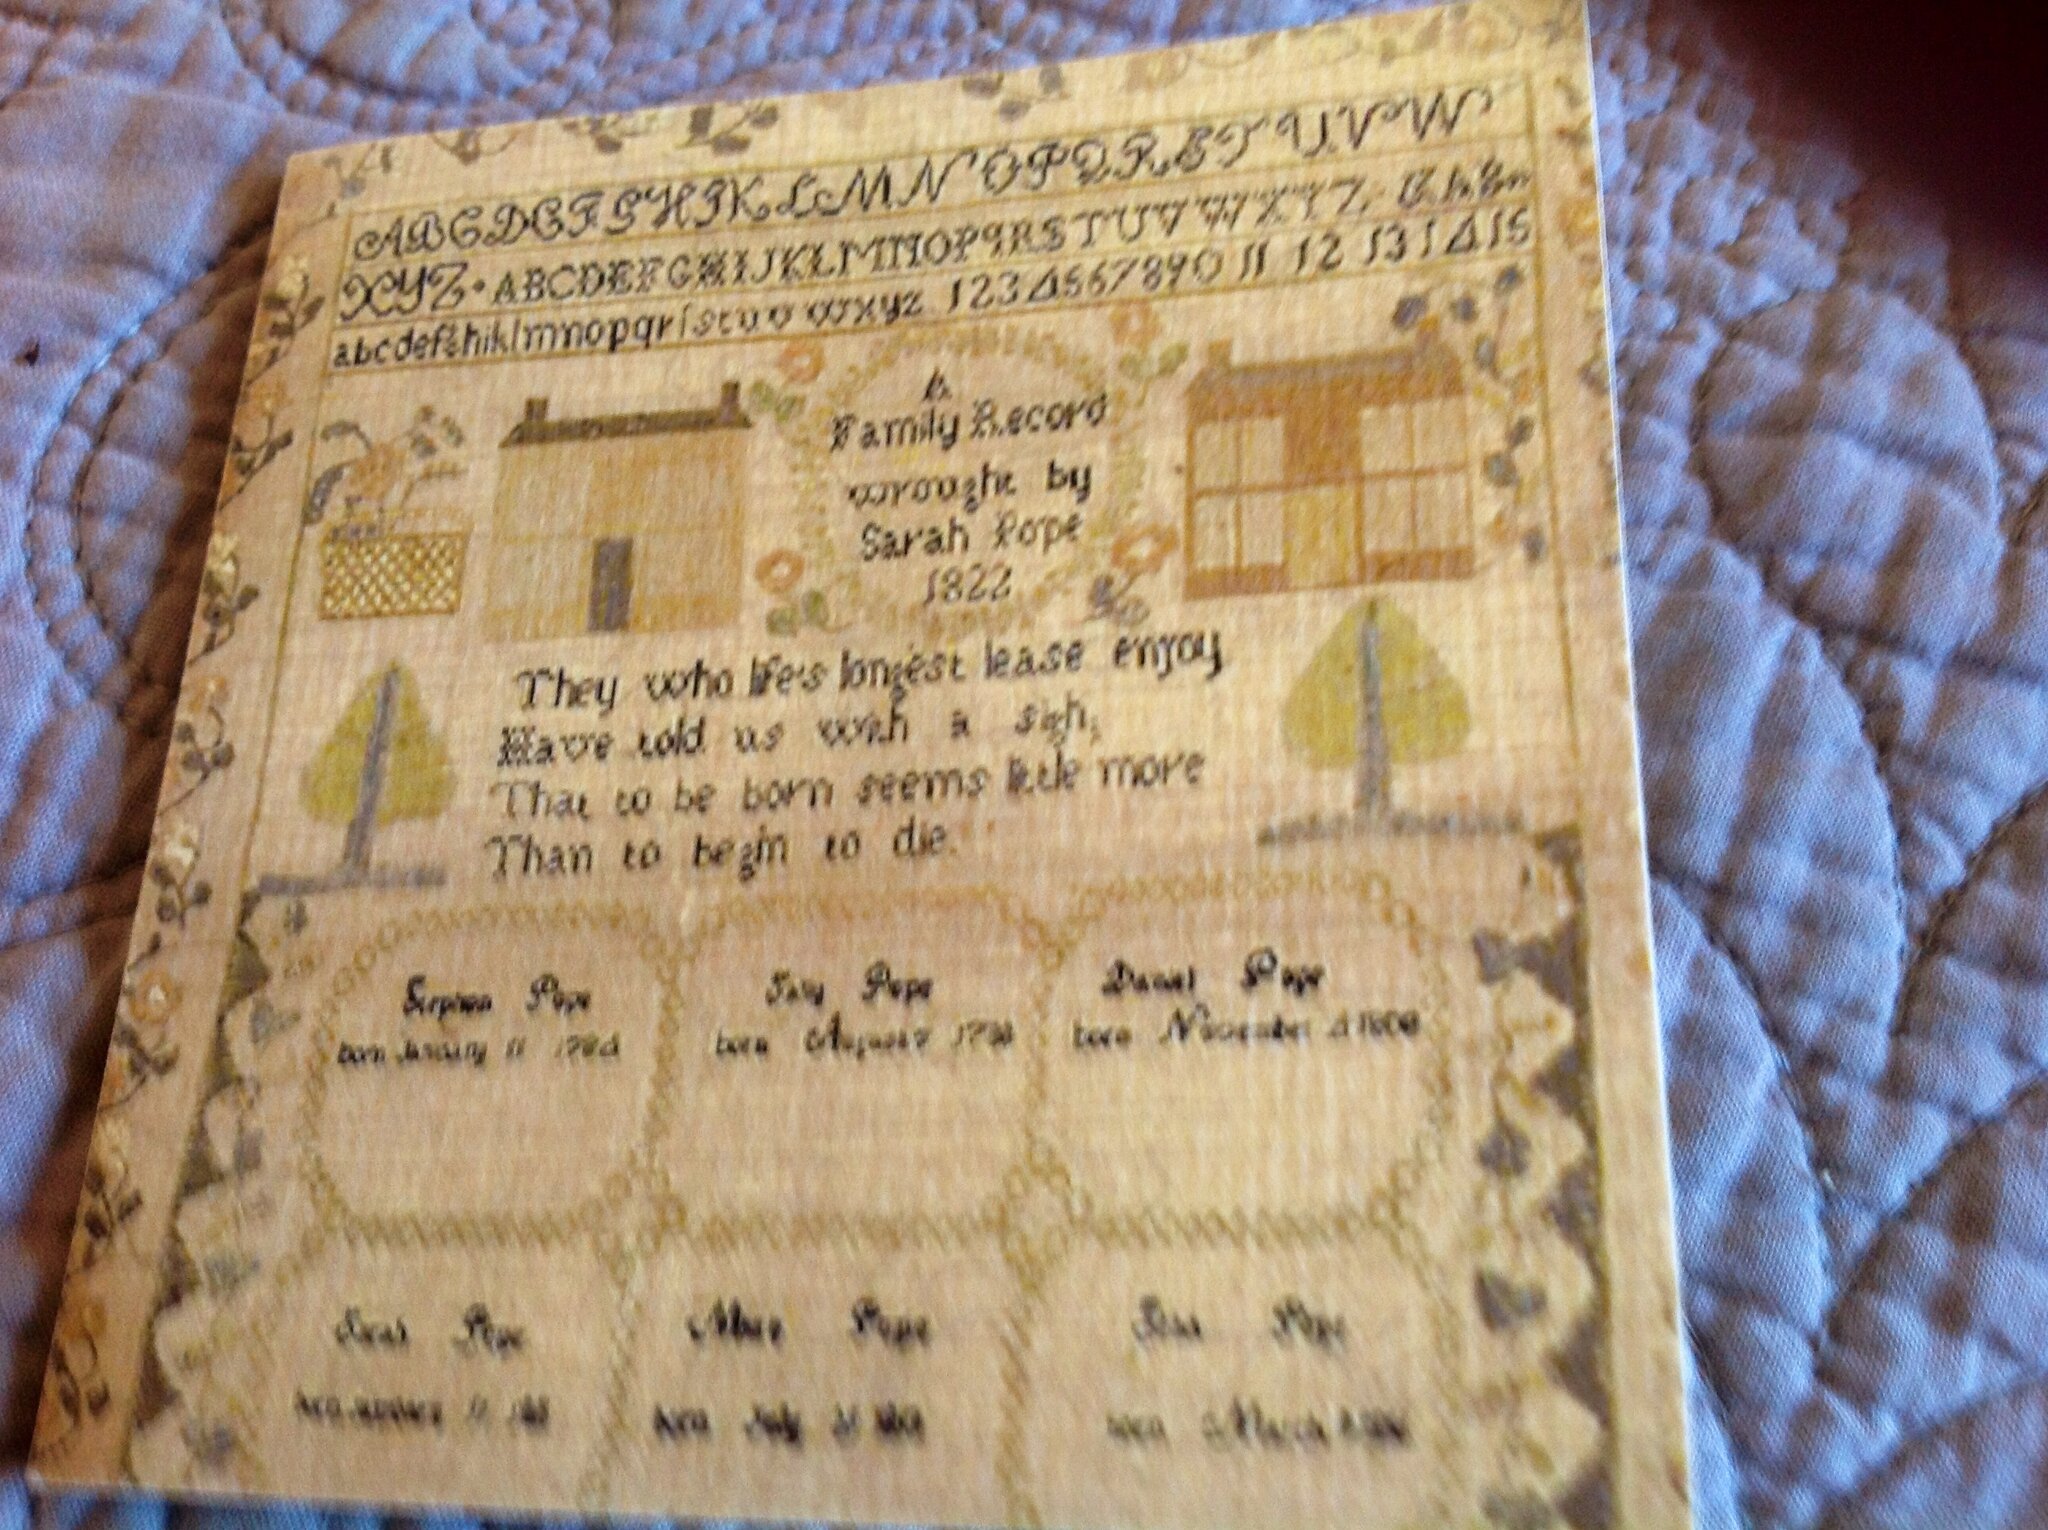 A B C D E F G H I K L M N O P Q R S T U V W
X Y Z · A B C D E F G H I J K L M N O P Q R S T U V W X Y Z ·
a b c d e f g h i k l m n o p q r ſ s t u v w x y z 1 2 3 4 5 6 7 8 9 0 11 12 13 14 15
A
Family Record
wrought by
Sarah Pope
1822
They who life's longest lease enjoy
Have told us with a sigh,
That to be born seems little more
Than to begin to die.
Stephen Pope
born January 11
Pope
born August 7
Daniel Pope
born November
Pope
born 11
Pope
born July
Pope
born March